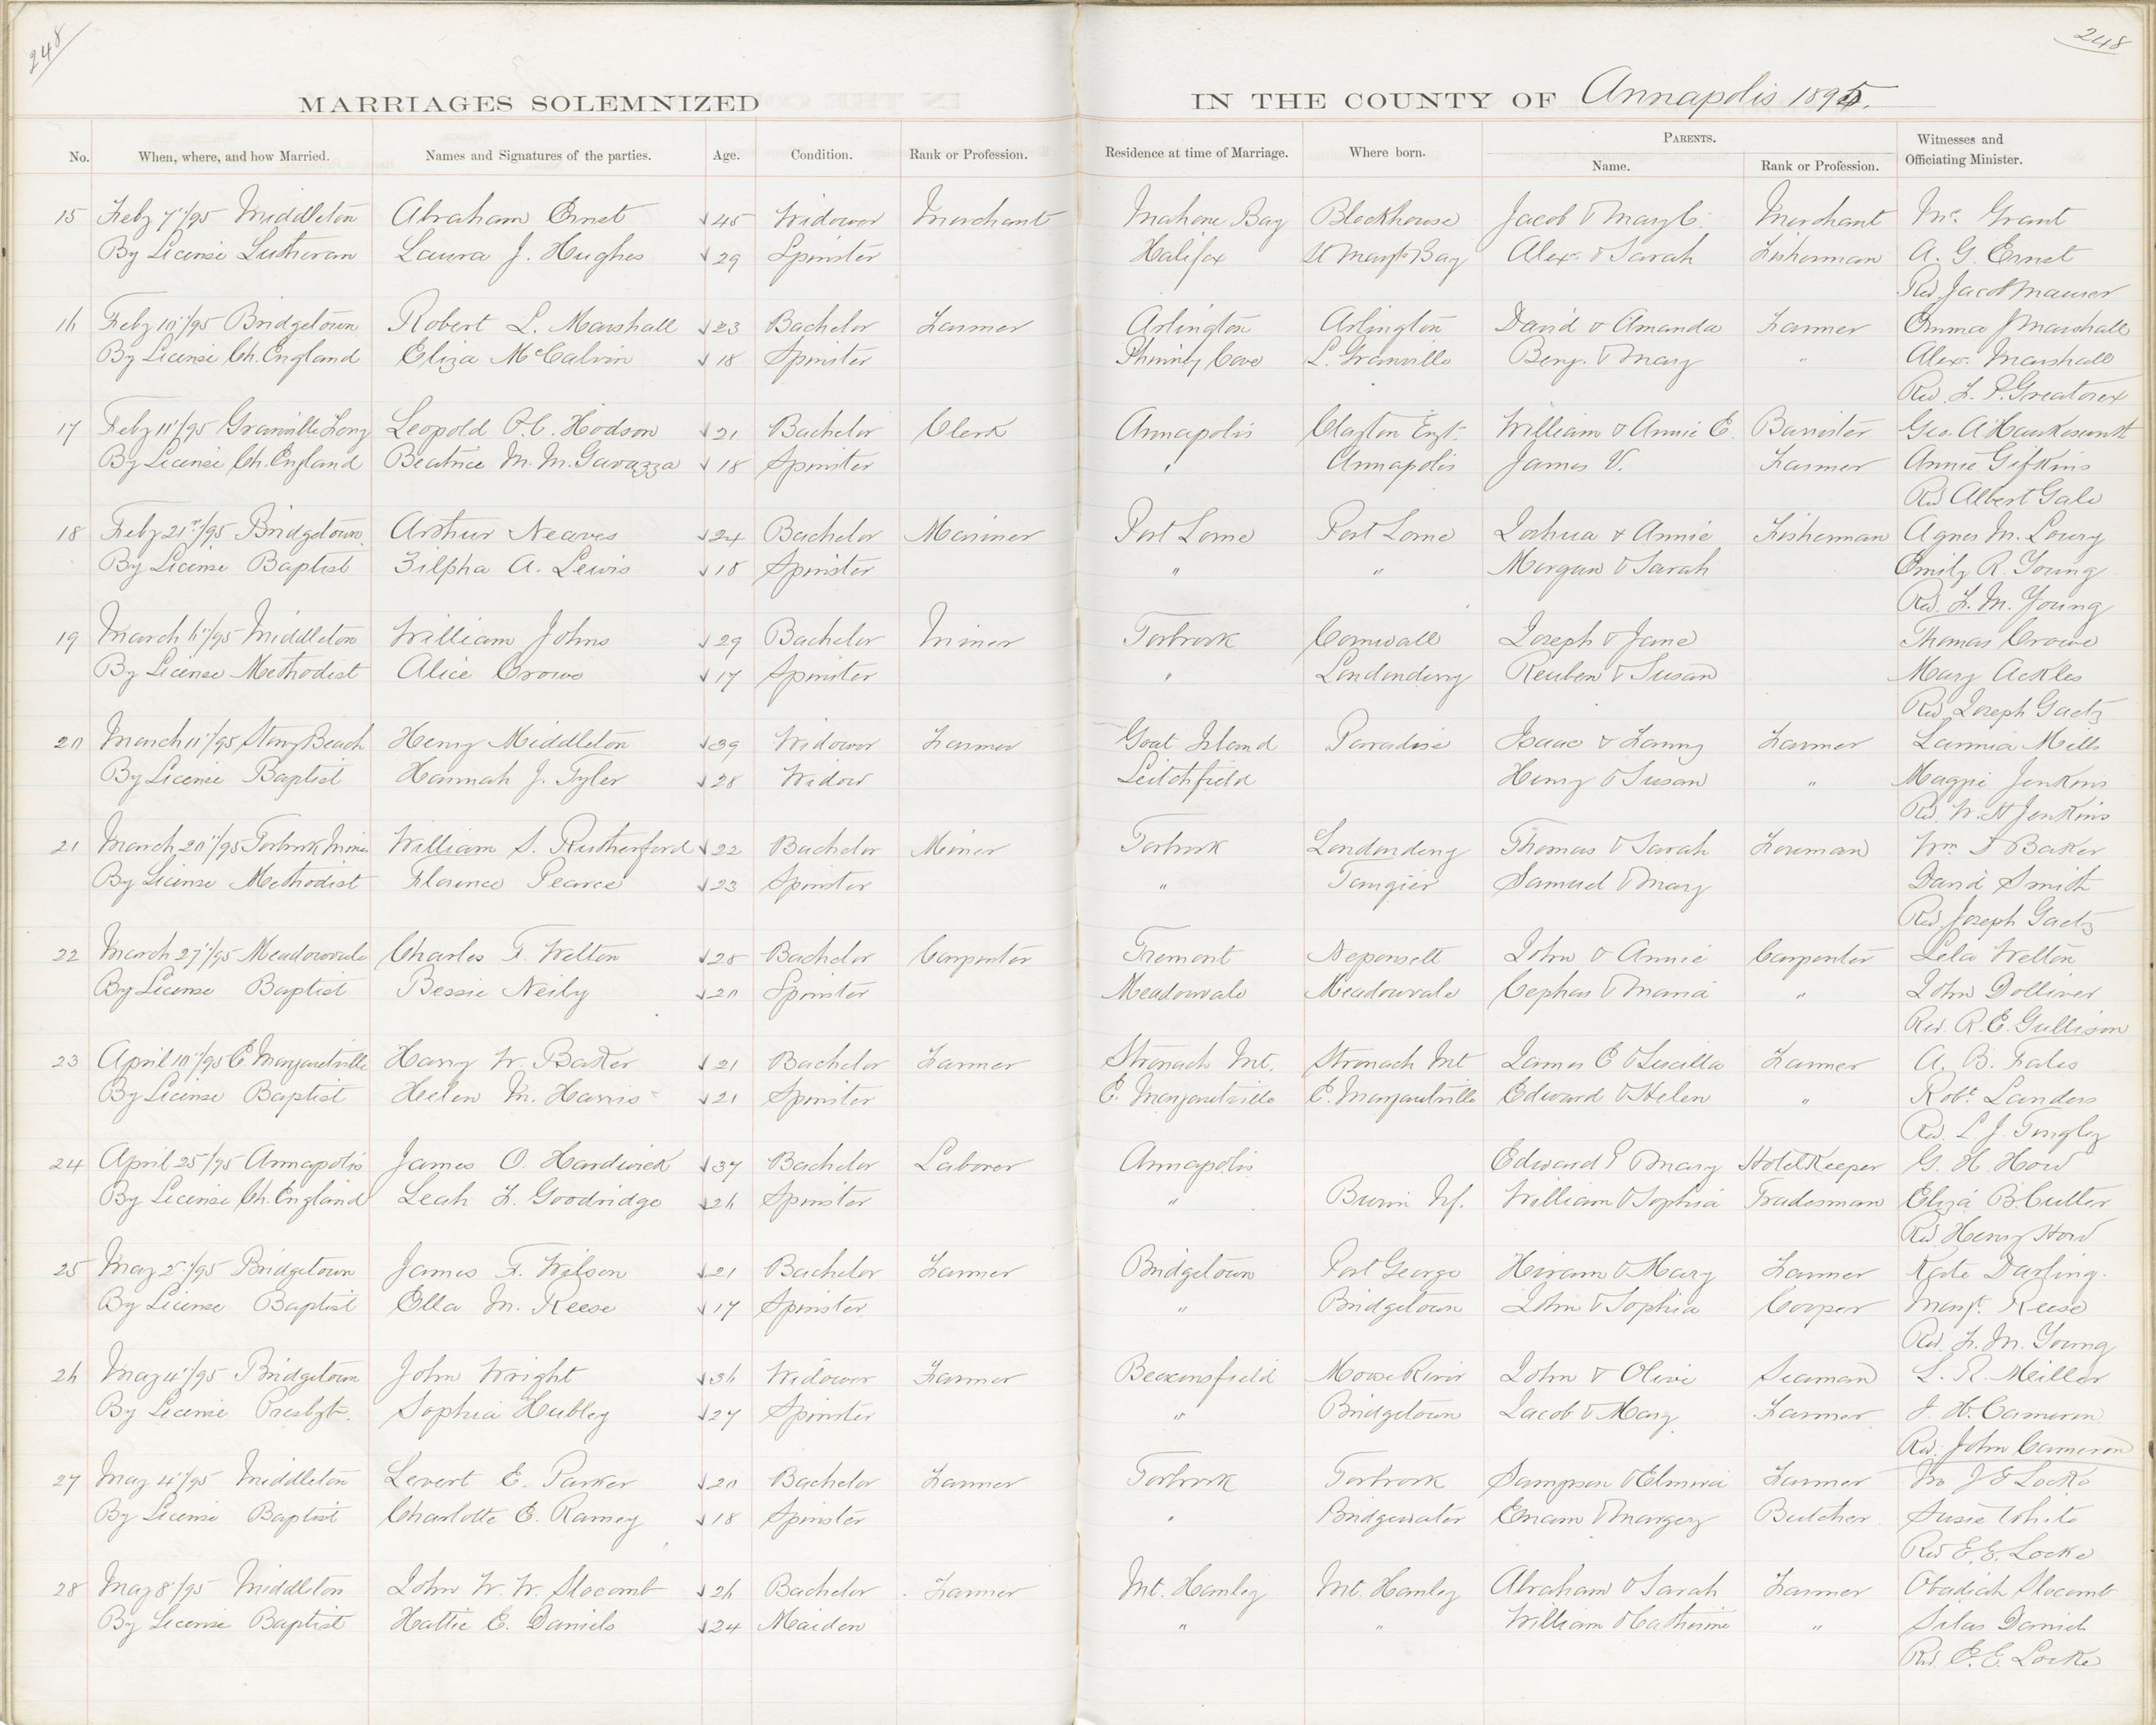 248
248
MARRIAGES SOLEMNIZED IN THE COUNTY OF Annapolis 1895.
No. When, where, and how Married. Names and Signatures of the parties. Age. Condition. Rank or Profession. Residence at time of Marriage. Where born. PARENTS. Name. Rank or Profession. Witnesses and Officiating Minister.
15 Feby 7"/95 Middleton Abraham Ernst 45 Widower Merchant Mahone Bay Blockhouse Jacob & Mary C. Merchant Grant
By License Lutheran Laura J. Hughes 29 Spinster Halifax St Margts Bay Alex. & Sarah Fisherman A. G. Ernst
Rev Jacob Maurer
16 Feby 10"/95 Bridgetown Robert L. Marshall 23 Bachelor Farmer Arlington Arlington David & Amanda Farmer Emma J Marshall
By License Ch. England Eliza McCalvin 18 Spinster Phinney Cove L. Granville Benj. & Mary " Alex. Marshall
Rev. F. P. Greatorex
17 Feby 11"/95 Granville Ferry Leopold P. C. Hodson 21 Bachelor Clerk Annapolis Clayton Engt. William & Annie E. Barrister Geo. A Hawkesworth
By License Ch. England Beatrice M. M. Gavazza 18 Spinster " Annapolis James V. Farmer Annie Gifkins
Rev Albert Gale
18 Feby 21st/95 Bridgetown. Arthur Neaves 24 Bachelor Mariner Port Lorne Port Lorne Joshua & Annie Fisherman Agnes M. Lowry
By License Baptist Zilpha A. Lewis 18 Spinster " " Morgan & Sarah Emily R. Young
Rev. F. M. Young
19 March 6"/95 Middleton William Johns 29 Bachelor Miner Torbrook Cornwall Joseph & Jane Thomas Crowe
By License Methodist Alice Crowe 17 Spinster " Londonderry Reuben & Susan Mary Ackles
Rev. Joseph Gaetz
20 March 11"/95 Stony Beach Henry Middleton 39 Widower Farmer Goat Island Paradise Isaac & Fanny Farmer Lannia Mills
By License Baptist Hannah J. Tyler 28 Widow Leitchfield Henry & Susan " Maggie Jenkins
Rev. W. H Jenkins
21 March 20"/95 Torbrook Mines William S. Rutherford 22 Bachelor Miner Torbrook Londonderry Thomas & Sarah Foreman Wm Baker
By License Methodist Florence Pearce 23 Spinster " Tangier Samuel & Mary David Smith
Rev Joseph Gaetz
22 March 27"/95 Meadowvale Charles F. Welton 28 Bachelor Carpenter Tremont Neponsett John & Annie Carpenter Lela Welton
By License Baptist Bessie Neily 20 Spinster Meadowvale Meadowvale Cephas & Maria " John Dolliver
Rev. R. E. Gullison
23 April 10"/95 E. Margaretville Harry W. Baker 21 Bachelor Farmer Stronach Mt. Stronach Mt James E & Lucilla Farmer A. B. Fales
By License Baptist Helen M. Harris 21 Spinster E. Margaretville E. Margaretville Edward & Helen " Robt. Landers
Rev. L J. Tingley
24 April 25"/95 Annapolis James O. Hardwick 37 Bachelor Laborer Annapolis Edward & Mary Hotel Keeper G. H. How
By License Ch. England Leah F. Goodridge 26 Spinster " Burin Nf. William & Sophia Tradesman Eliza B. Cutler
Rev Henry How
25 May 2"/95 Bridgetown James F. Wilson 21 Bachelor Farmer Bridgetown Port George Hiram & Mary Farmer Kate Darling.
By License Baptist Ella M. Reese 17 Spinster " Bridgetown John & Sophia Cooper Margt. Reese
Rev. F. M. Young
26 May 4"/95 Bridgetown John Wright 36 Widower Farmer Beaconsfield Moose River John & Olive Seaman L. R. Miller
By License Presbytn. Sophia Hubley 27 Spinster " Bridgetown Jacob & Mary Farmer J. H. Cameron
Rev. John Cameron
27 May 4"/95 Middleton Levert E. Parker 20 Bachelor Farmer Torbrook Torbrook Sampson & Elmira Farmer Locke
By License Baptist Charlotte E. Ramey 18 Spinster " Bridgewater Enam & Margery Butcher Susie White
Rev E. E. Locke
28 May 8"/95 Middleton John W. W. Slocomb 26 Bachelor Farmer Mt. Hanley Mt. Hanley Abraham & Sarah Farmer Obadiah Slocomb
By License Baptist Hattie E. Daniels 24 Maiden " " William & Catherine " Silas Daniels
Rev. E. E. Locke